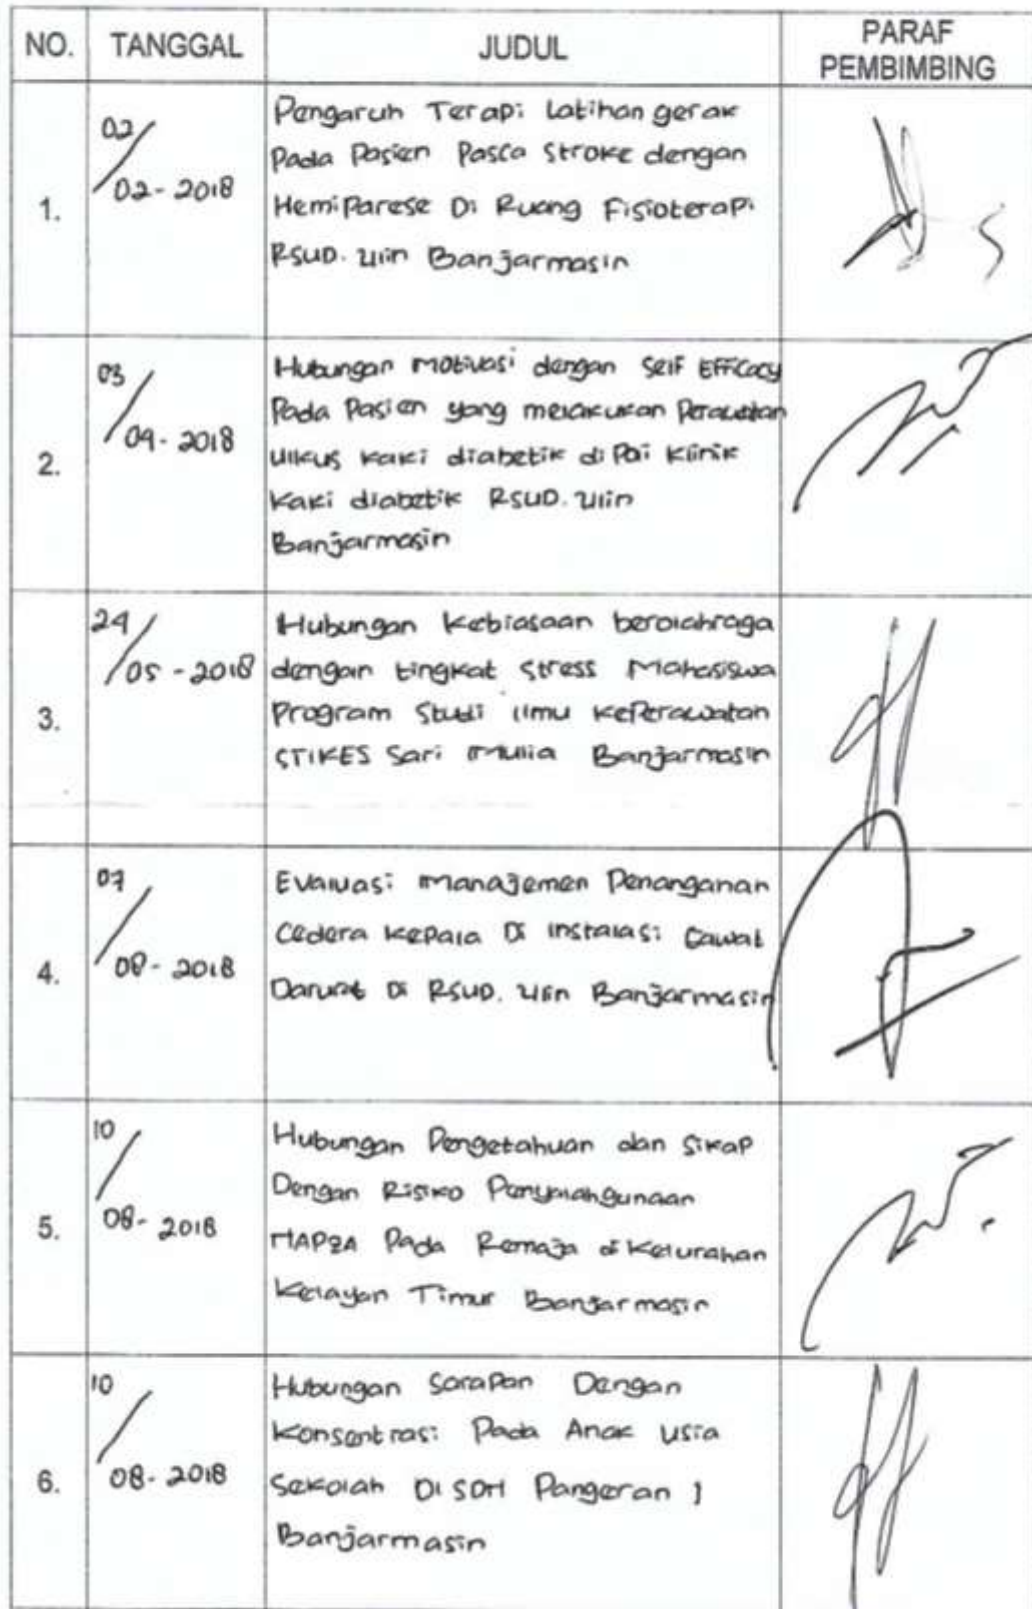 NO. TANGGAL JUDUL PARAF PEMBIMBING
1. 02/02-2018
Pengaruh Terapi Latihan gerak
Pada Pasien Pasca Stroke dengan
Hemiparese Di Ruang Fisioterapi
RSUD. Ulin Banjarmasin
2. 03/04-2018
Hubungan Motivasi dengan Self Efficacy
Pada Pasien yang melakukan Perawatan
Ulkus kaki diabetik di Poi Klinik
Kaki diabetik RSUD. Ulin
Banjarmasin
3. 24/05-2018
Hubungan Kebiasaan berolahraga
dengan tingkat stress Mahasiswa
Program Studi Ilmu Keperawatan
STIKES Sari Mulia Banjarmasin
4. 07/08-2018
Evaluasi Manajemen Penanganan
Cedera Kepala Di instalasi Gawat
Darurat Di RSUD. Ulin Banjarmasin
5. 10/08-2018
Hubungan Pengetahuan dan Sikap
Dengan Risiko Penyalahgunaan
NAPZA Pada Remaja di Kelurahan
Kelayan Timur Banjarmasin
6. 10/08-2018
Hubungan Sarapan Dengan
Konsentrasi Pada Anak Usia
Sekolah Di SDN Pangeran 1
Banjarmasin